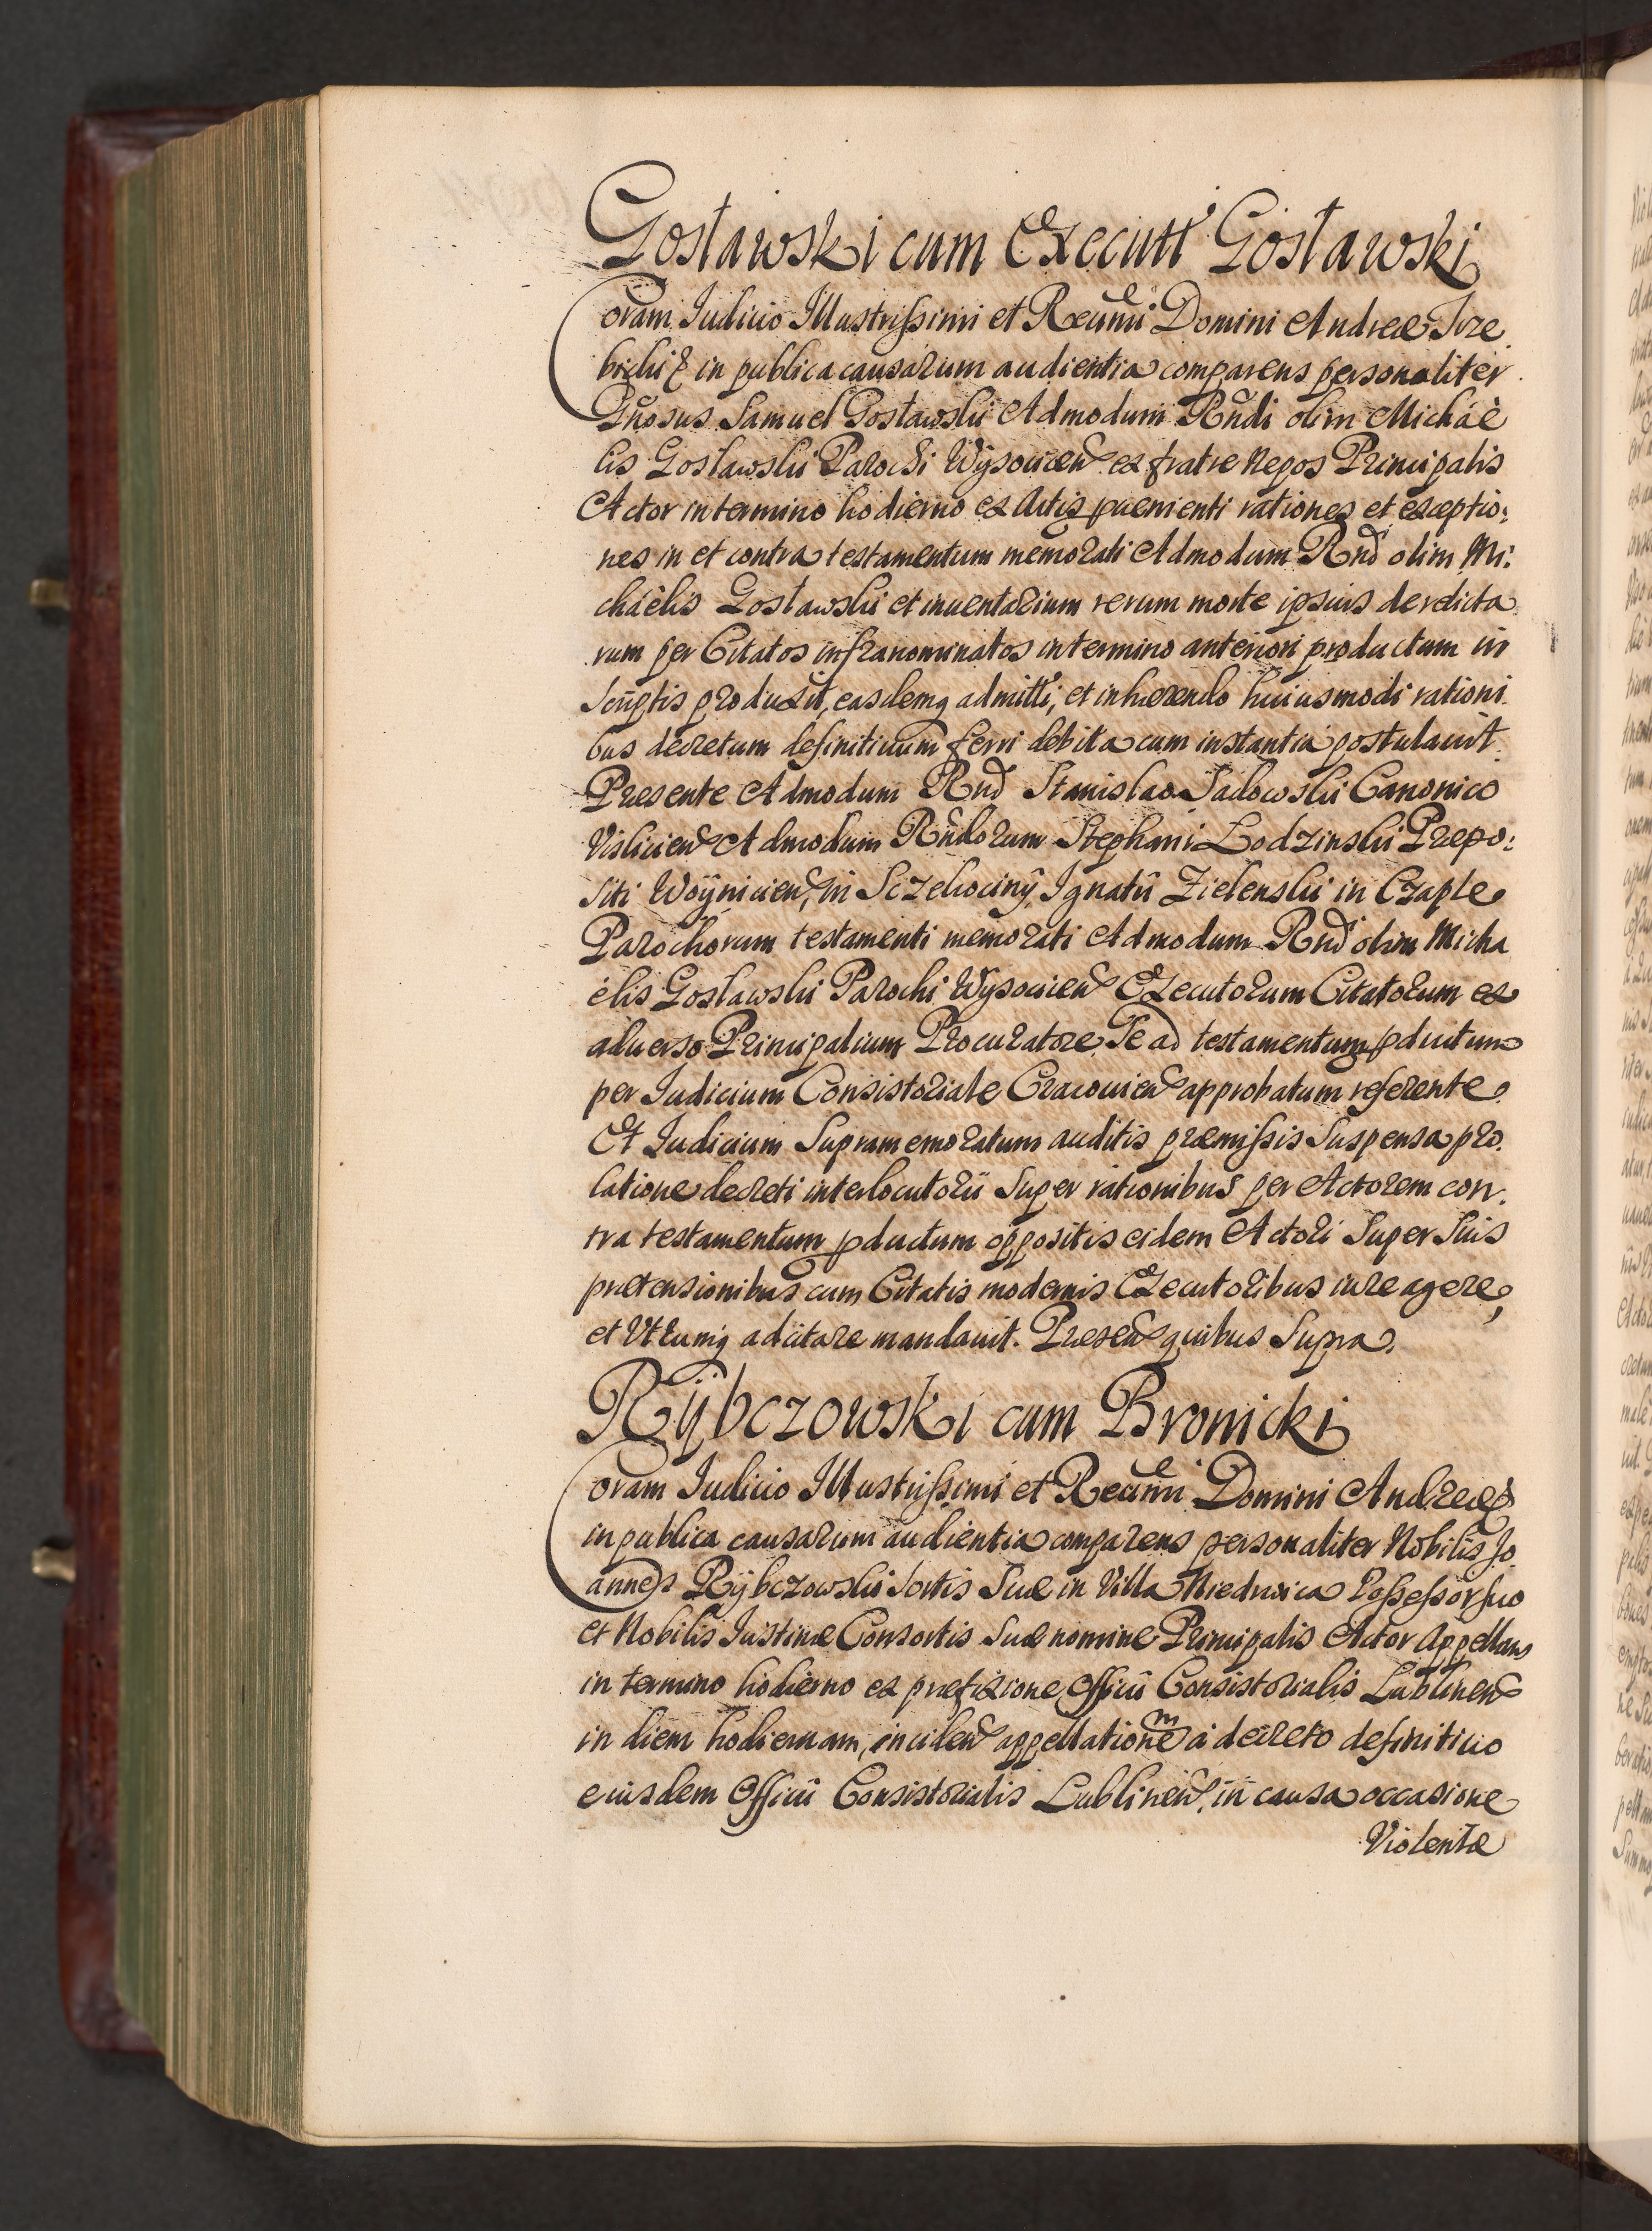 Gosławski cum Executt Gosławski
Coram Judicio Illustrissimi et Reūmi Domini Andreæ Trze
bicki & in publica causarum audientia comparens personaliter
Gn̄osus Samuel Gosławski Admodum Rn̄di olim Michaë
lis Gosławski Parochi Wysocicen̄ ex fratre Nepos Principalis
Actor in termino hodierno ex Actis prævenienti rationes et exceptio:
nes in et contra testamentum memorati Admodum Rnd̄ olim Mi:
chaëlis Gosławski et inuentarium rerum morte ipsius derelicta
rum per Citatos infranominatos in termino anteriori productum in
scriptis produxit, easdemq admitti, et inhærendo huiusmodi rationi
bus decretum definitiuum ferri debita cum instantia postulauit.
Præsente Admodum Rnd̄ Stanislao Sadowski Canonico
Visliciens̄ Admodum Rn̄dorum Stephani Lodzinski Præpo:
siti Woÿnicien̄, in Sczekocinÿ, Ignatÿ Zielenski in Czaple
Parochorum testamenti memorati Admodum Rnd̄ olim Micha
ëlis Gosławski Parochi Wysocicen̄ Executorum Citatorum ex
aduerso Principalium Procuratore. Se ad testamentum pductum
per Judicium Consistoriale Cracouien̄ approbatum referente.
Et Judicium Supramemoratum auditis præmissis Suspensa pro
latione decreti interlocutorii Super rationibus per Actorem con
tra testamentum pductum oppositis eidem Actori Super Suis
prætensionibus cum Citatis modernis Executoribus iure agere,
et Vtrumq adcitare mandauit. Præsen̄ quibus Supra.
Rÿbczowski cum Bronicki
Coram Judicio Illustrissimi et Reūmi Domini Andreæ &
in publica causarum audientia comparens personaliter Nobilis Jo
annes Rÿbczowski Sortis Suæ in Villa Niedrwica Possessor suo
et Nobilis Justinæ Consortis Suæ nomine Principalis Actor Appellans
in termino hodierno ex præfixione Officii Consistorialis Lublinen̄
in diem hodiernam, inciden̄ appellationem à decreto definitiuo
eiusdem Officii Consistorialis Lublinen̄, in causa occasione
Violentæ